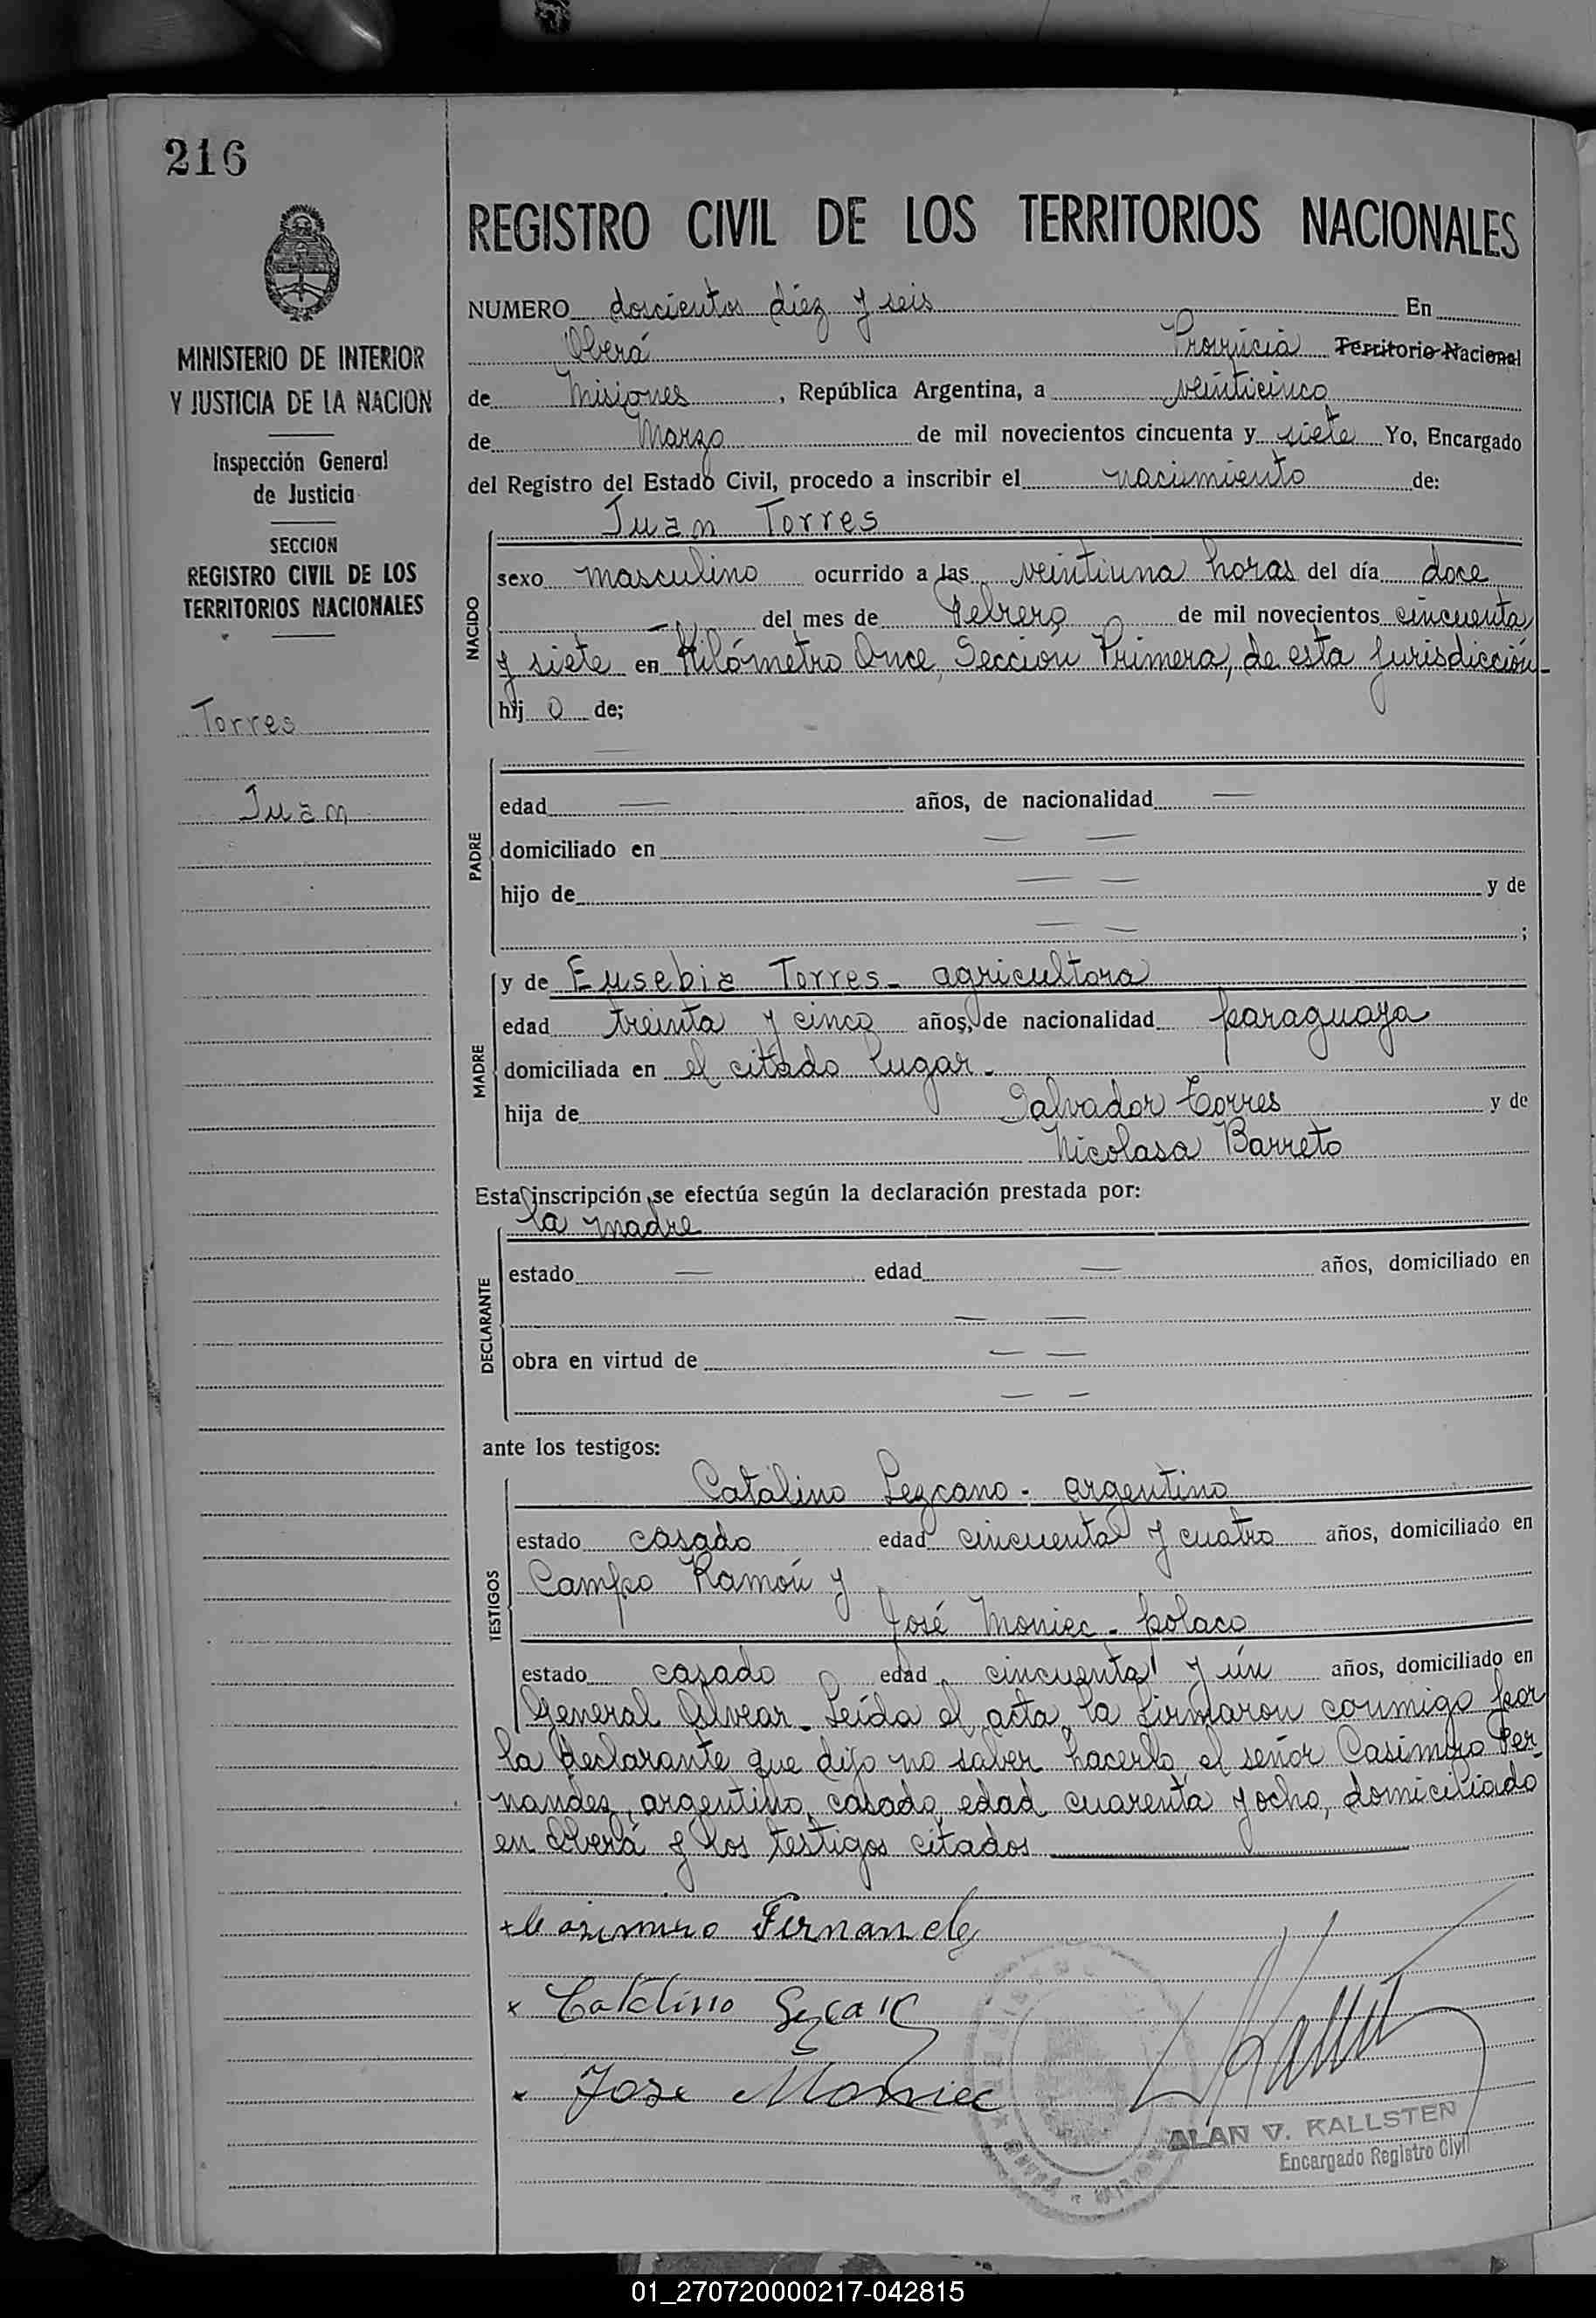 216
REGISTRO CIVIL DE LOS TERRITORIOS NACIONALES
MINISTERIO DE INTERIOR
Y JUSTICIA DE LA NACION
Inspección General
de Justicia
SECCION
REGISTRO CIVIL DE LOS
TERRITORIOS NACIONALES
Torres
Juan
NUMERO doscientos diez y seis En
Oberá Provincia Territorio Nacional
de Misiones, República Argentina, a veinticinco
de Marzo de mil novecientos cincuenta y siete Yo, Encargado
del Registro del Estado Civil, procedo a inscribir el nacimiento de:
NACIDO
Juan Torres
sexo masculino ocurrido a las veintiuna horas del día doce
— del mes de Febrero de mil novecientos cincuenta
y siete en Kilómetro Once, Sección Primera, de esta jurisdicción-
hij o de;
PADRE
—
edad — años, de nacionalidad —
domiciliado en — —
hijo de — — y de
— — ;
MADRE
y de Eusebia Torres- agricultora
edad treinta y cinco años, de nacionalidad paraguaya
domiciliada en el citado lugar.
hija de Salvador Torres y de
Nicolasa Barreto
Esta inscripción se efectúa según la declaración prestada por:
DECLARANTE
la madre
estado — edad — años, domiciliado en
— —
obra en virtud de — —
— —
ante los testigos:
TESTIGOS
Catalino Lezcano- argentino
estado casado edad cincuenta y cuatro años, domiciliado en
Campo Ramón y
José Moniec- polaco
estado casado edad cincuenta y un años, domiciliado en
General Alvear. Leída el acta, la firmaron conmigo por
la declarante que dijo no saber hacerlo, el señor Casimiro Fer-
nandez, argentino, casado, edad cuarenta y ocho, domiciliado
en Oberá y los testigos citados
+Casimiro Fernandez
x Catalino
x Jose Moniec
ALAN V. KALLSTEN
Encargado Registro Civil
01_270720000217-042815